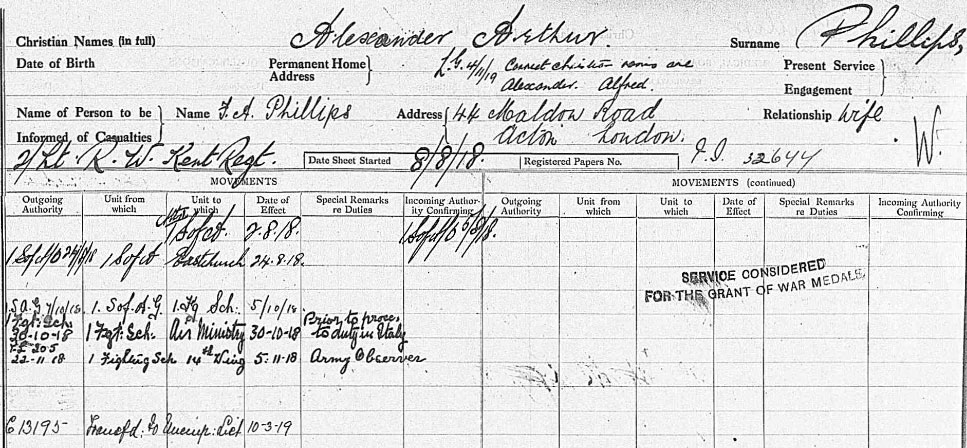 Christian Names (in full) Alexander Arthur. Surname Phillips,
Date of Birth Permanent Home Address L.G. 4/11/19 Correct christian names are Alexander. Alfred. Present Service Engagement
Name of Person to be Informed of Casualties Name F.A. Phillips Address 44 Maldon Road Acton London. Relationship Wife
W.
2/Lt. R. W. Kent Regt. Date Sheet Started 8/8/18. Registered Papers No. P.I. 32644
MOVEMENTS MOVEMENTS (continued)
Outgoing Authority Unit from which Unit to which Date of Effect Special Remarks re Duties Incoming Authority Confirming Outgoing Authority Unit from which Unit to which Date of Effect Special Remarks re Duties Incoming Authority Confirming
1 S of 2.8.18. 1 S of
1 S of 1 S of Eastchurch 24.8.18.
SERVICE CONSIDERED
FOR THE GRANT OF WAR MEDALS
S.A.G. 4/10/18 1. S. of A.G 1. Fg Sch. 5/10/18
1 Fgt: Sch: 30-10-18 1 Fgt: Sch. Air Ministry 30-10-18 Prior to proc. to duty in Italy
205
22-11-18 1 Fighting Sch 14th Wing 5-11-18 Army Observer
C 13195 Transfd: to Unemp: List 10-3-19